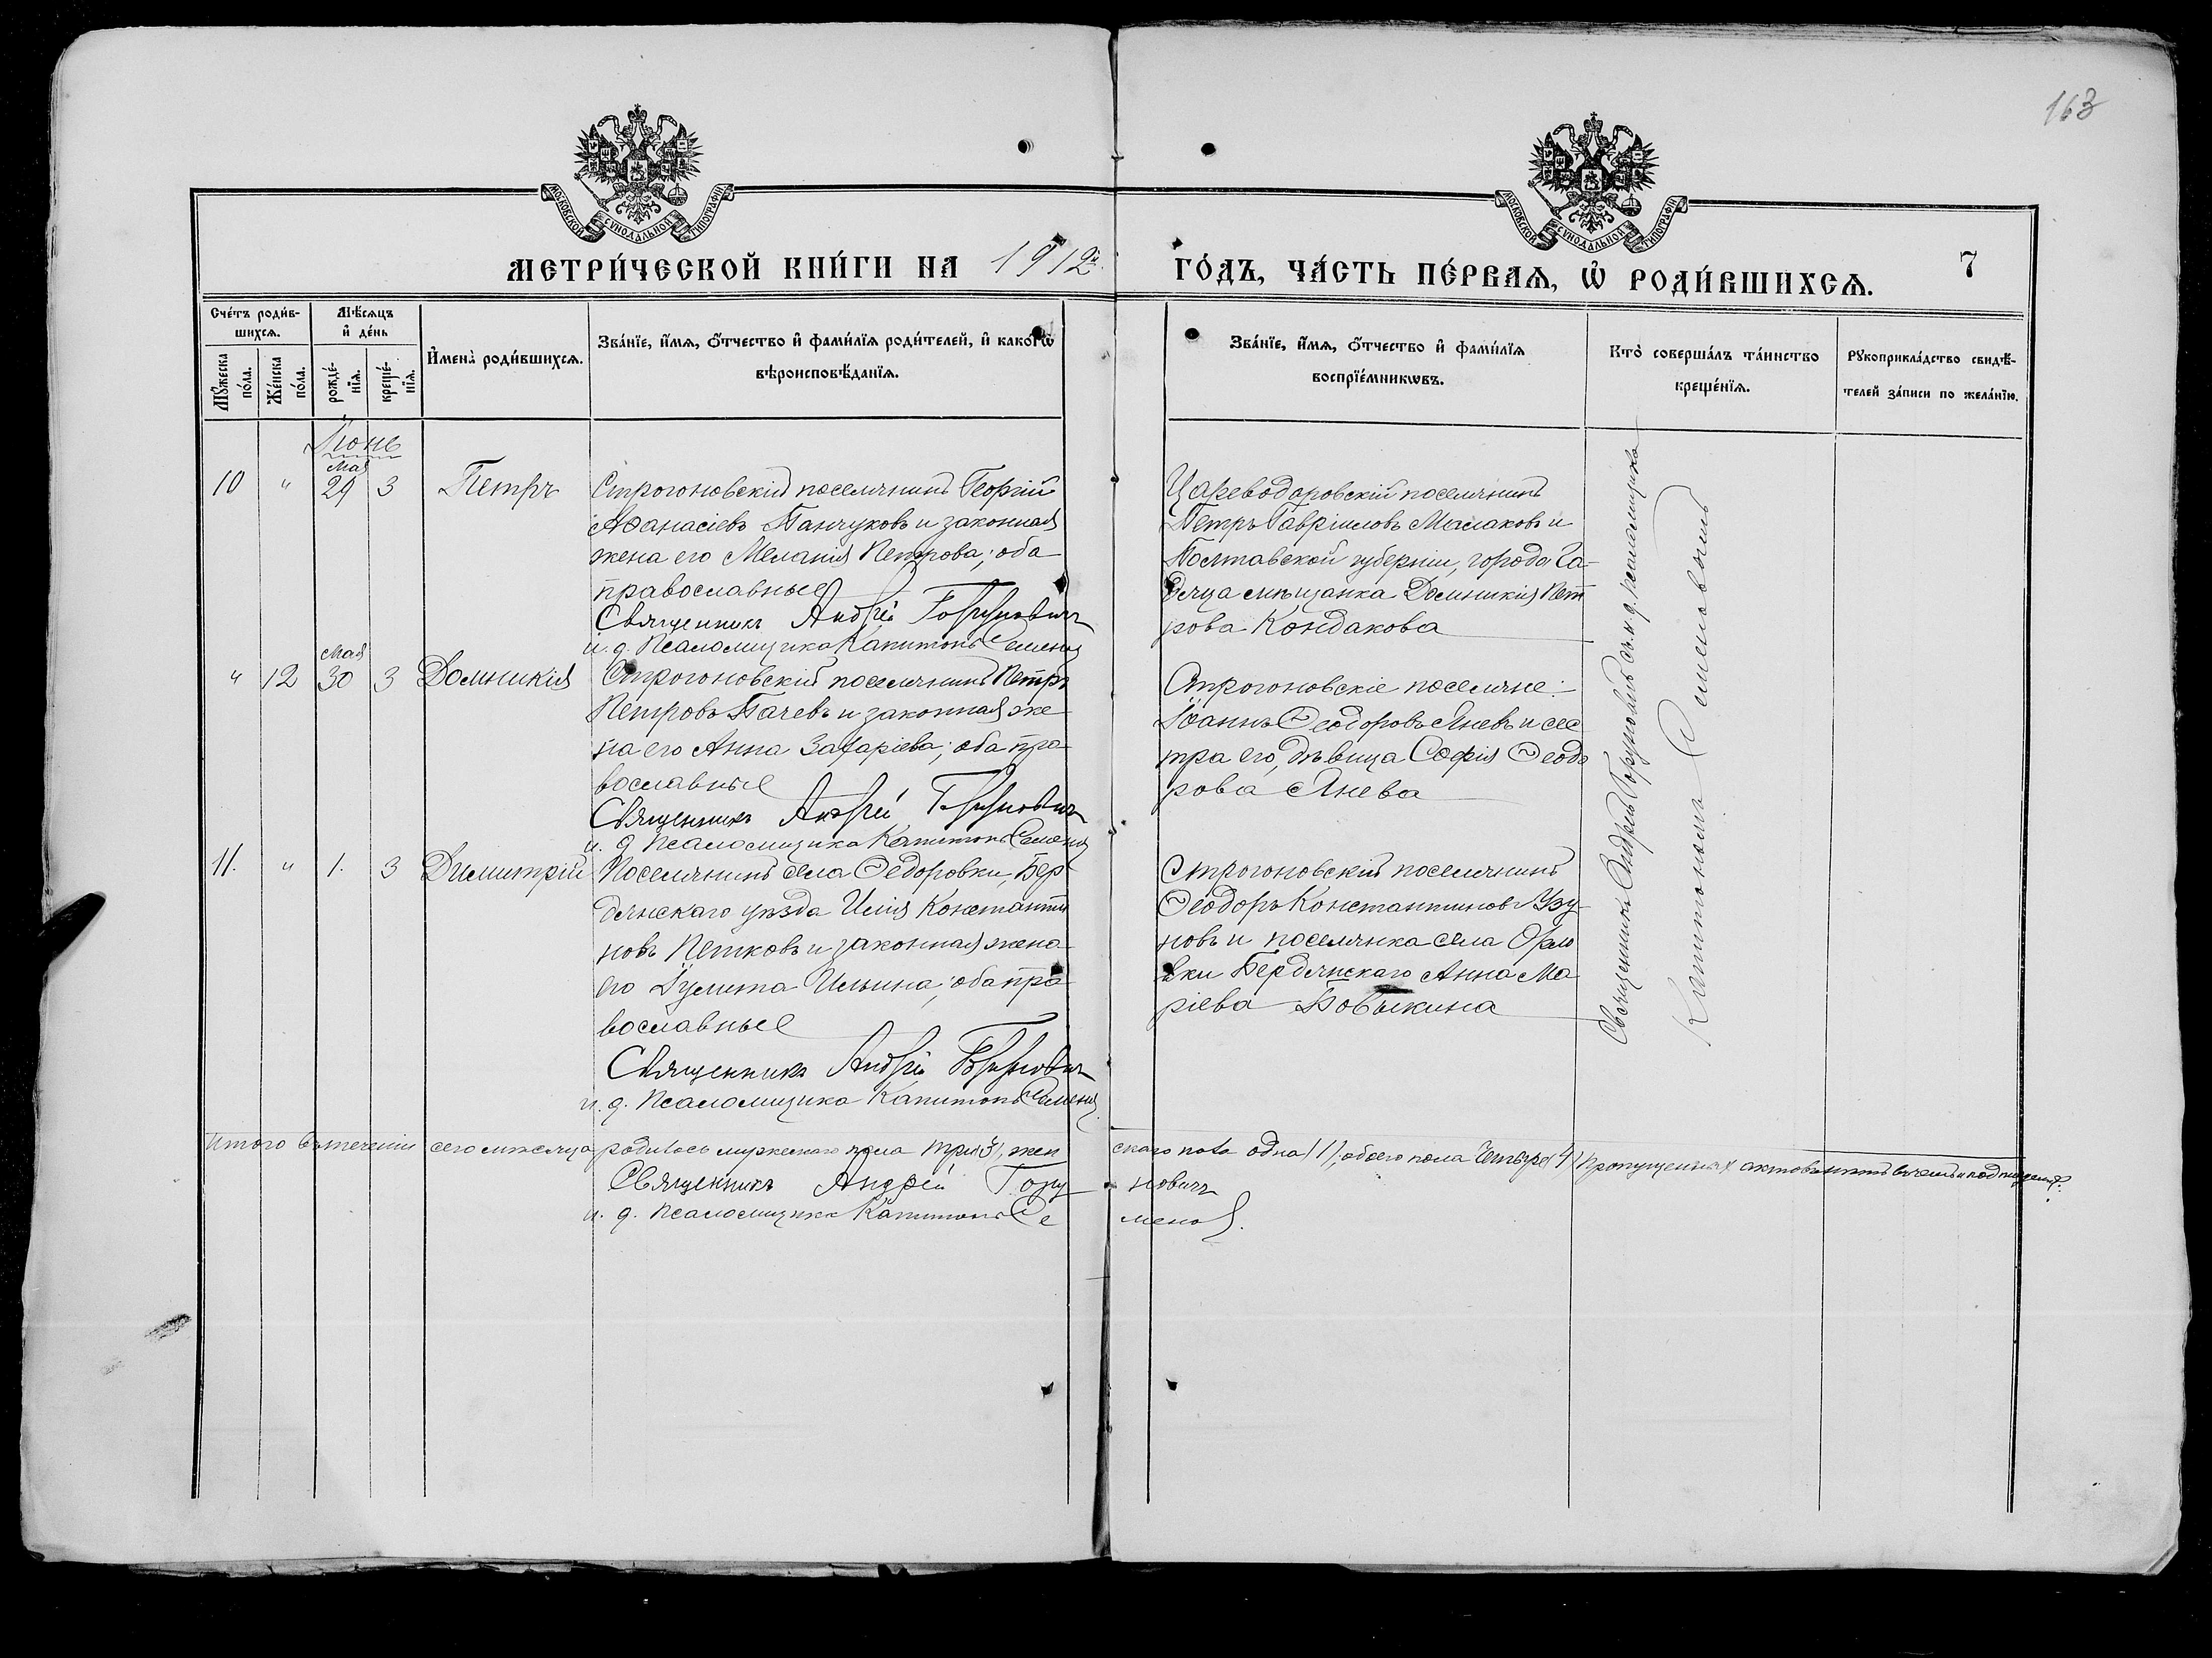 163
МОСКОВСКОЙ СѴНОДАЛЬНОЙ ТИПОГРАФІИ
МОСКОВСКОЙ СѴНОДАЛЬНОЙ ТИПОГРАФІИ
МЕТРИ́ЧЕСКОЙ КНИ́ГИ НА 1912й
ГО́ДЪ, ЧА́СТЬ ПЕ́РВАѦ, Ѡ҆ РОДИ́ВШИХСѦ.
7
Сче́тъ роди́в-
шихсѧ.
Мꙋ́жеска по́ла.
Же́нска по́ла.
Мѣ́сѧцъ
и҆ де́нь
рожде́-
нїѧ.
креще́-
нїѧ.
И҆мена̀ роди́вшихсѧ.
Зва́нїе, и҆́мѧ, ѻ҆́тчество и҆ фами́лїѧ роди́телей, и҆ како́гѡ
вѣроисповѣ́данїѧ.
Зва́нїе, и҆́мѧ, ѻ҆́тчество и҆ фами́лїѧ
воспрїе́мникѡвъ.
Кто̀ соверша́лъ та́инство
креще́нїѧ.
Рꙋкоприкла́дство свидѣ́-
телей за́писи по жела́нїю.
Іюнь
10 " Мая 29 3 Петръ
Строгоновскій поселянинъ Георгій
Аѳанасіевъ Танчуковъ и законная
жена его Меланія Петрова; оба
православные
Священникъ Андрей Горуновичъ
и. д. Псаломщика Капитонъ Семенов
Цареводаровскій поселянинъ
Петръ Гавріиловъ Малаковъ и
Полтавской губерніи, города Га-
дяча мѣщанка Домникія Пет
рова Кондакова
" 12 Мая 30 3 Домникія
Строгоновскій поселянинъ Петръ
Петровъ Тачевъ и законная же
на его Анна Захаріева; оба пра
вославные
Священникъ Андрей Горуновичъ
и. д. Псаломщика Капитонъ Семенов
Строгоновскіе поселяне:
Іоаннъ Ѳеодоровъ Яневъ и сес
тра его, дѣвица Софія Ѳеодо
рова Янева
11. " 1. 3 Димитрій
Поселянинъ села Ѳедоровки, Бер
дянскаго уѣзда Илія Константи
новъ Петковъ и законная жена
его Іулита Ильина; оба пра
вославные
Священникъ Андрей Горуновичъ
и. д. Псаломщика Капитонъ Семенов
Строгоновскій поселянинъ
Ѳеодоръ Константиновъ Узу
новъ и поселянка села Орло
вки Бердянскаго Анна Ма
ріева Бовыкина
Священникъ Андрей Горуновичъ съ и. д. псаломщика
Капитономъ Семеновымъ
Итого въ теченіи сего мѣсяца родилось мужескаго пола три (3), жен
скаго пола одна (1), обоего пола четыре (4) Пропущенныхъ актовъ нѣтъ въ чемъ и подписуемся:
Священникъ Андрей Гору новичъ
и. д. Псаломщика Капитонъ Се менов.